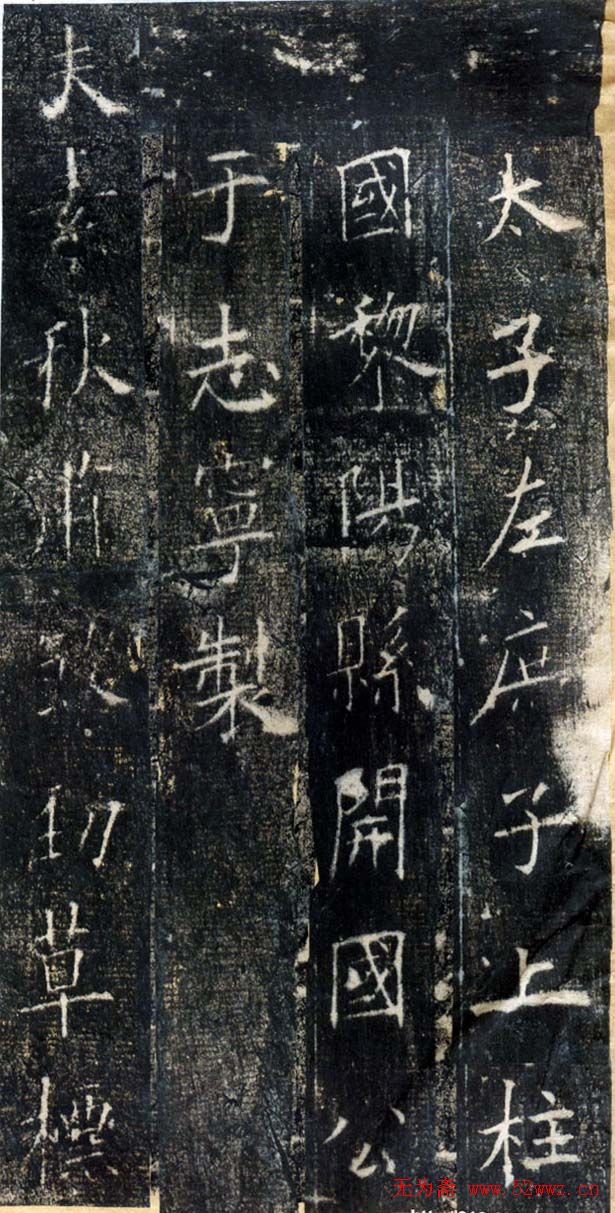 太子左庶子上柱
國黎陽縣開國公
于志寧製
夫素秋肅煞勁草標
无为斋 www.52wwz.cn